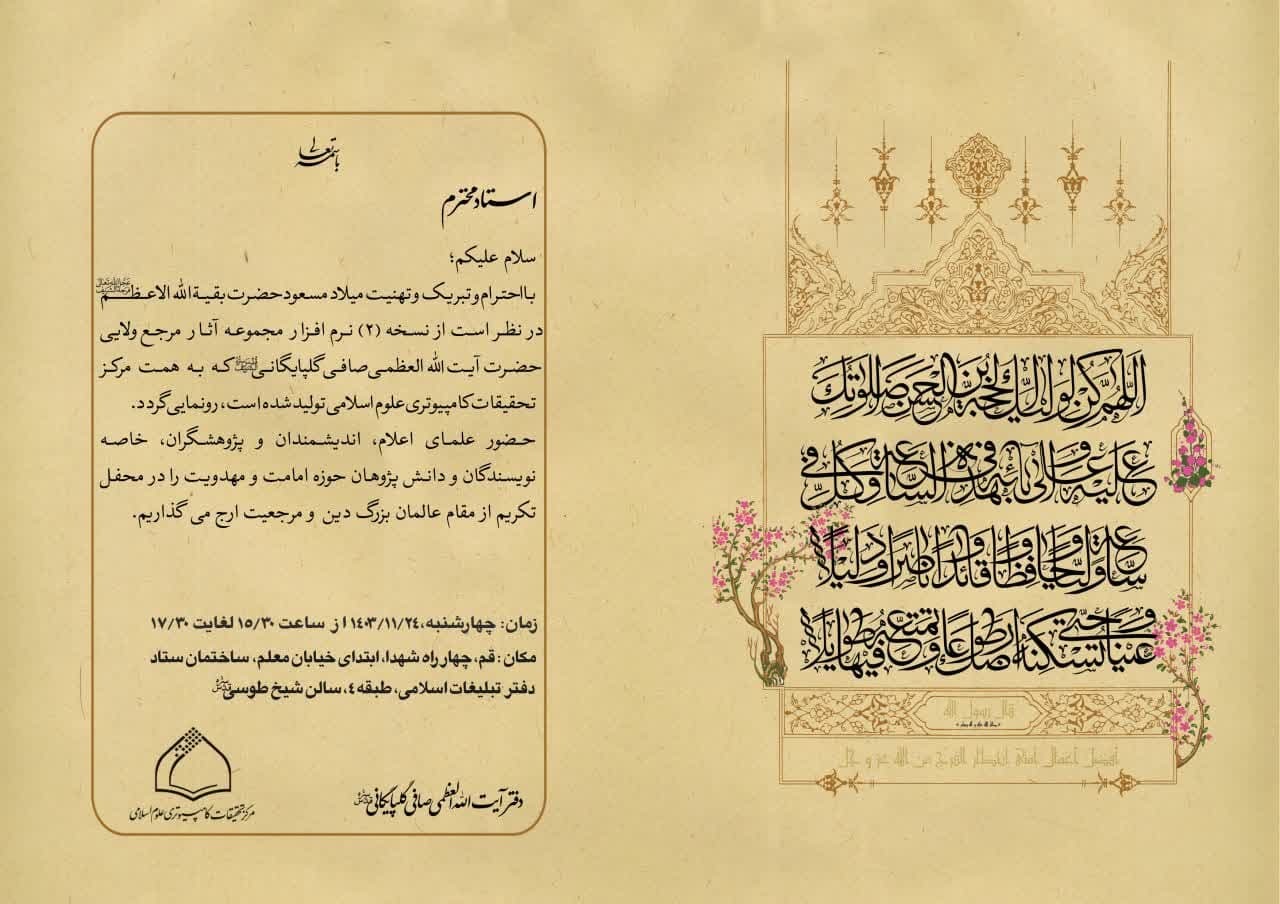 اللهم کن لولیک الحجة بن الحسن صلواتک
علیه وعلی آبائه فی هذه الساعة وفی کل
ساعة ولیا وحافظا وقائدا وناصرا ودلیلا
وعینا حتی تسکنه ارضک طوعا وتمتعه فیها طویلا
قال رسول الله
أفضل أعمال أمتی إنتظار الفرج من الله عز و جل
باسمه تعالی
استاد محترم
سلام علیکم؛
با احترام و تبریک و تهنیت میلاد مسعود حضرت بقیة الله الاعظم
در نظر است از نسخه (۲) نرم افزار مجموعه آثار مرجع ولایی
حضرت آیت الله العظمی صافی گلپایگانی که به همت مرکز
تحقیقات کامپیوتری علوم اسلامی تولید شده است، رونمایی گردد.
حضور علمای اعلام، اندیشمندان و پژوهشگران، خاصه
نویسندگان و دانش پژوهان حوزه امامت و مهدویت را در محفل
تکریم از مقام عالمان بزرگ دین و مرجعیت ارج می گذاریم.
زمان: چهارشنبه، ۱۴۰۳/۱۱/۲۴ از ساعت ۱۵/۳۰ لغایت ۱۷/۳۰
مکان: قم، چهار راه شهدا، ابتدای خیابان معلم، ساختمان ستاد
دفتر تبلیغات اسلامی، طبقه ۴، سالن شیخ طوسی
دفتر آیت الله العظمی صافی گلپایگانی
مرکز تحقیقات کامپیوتری علوم اسلامی